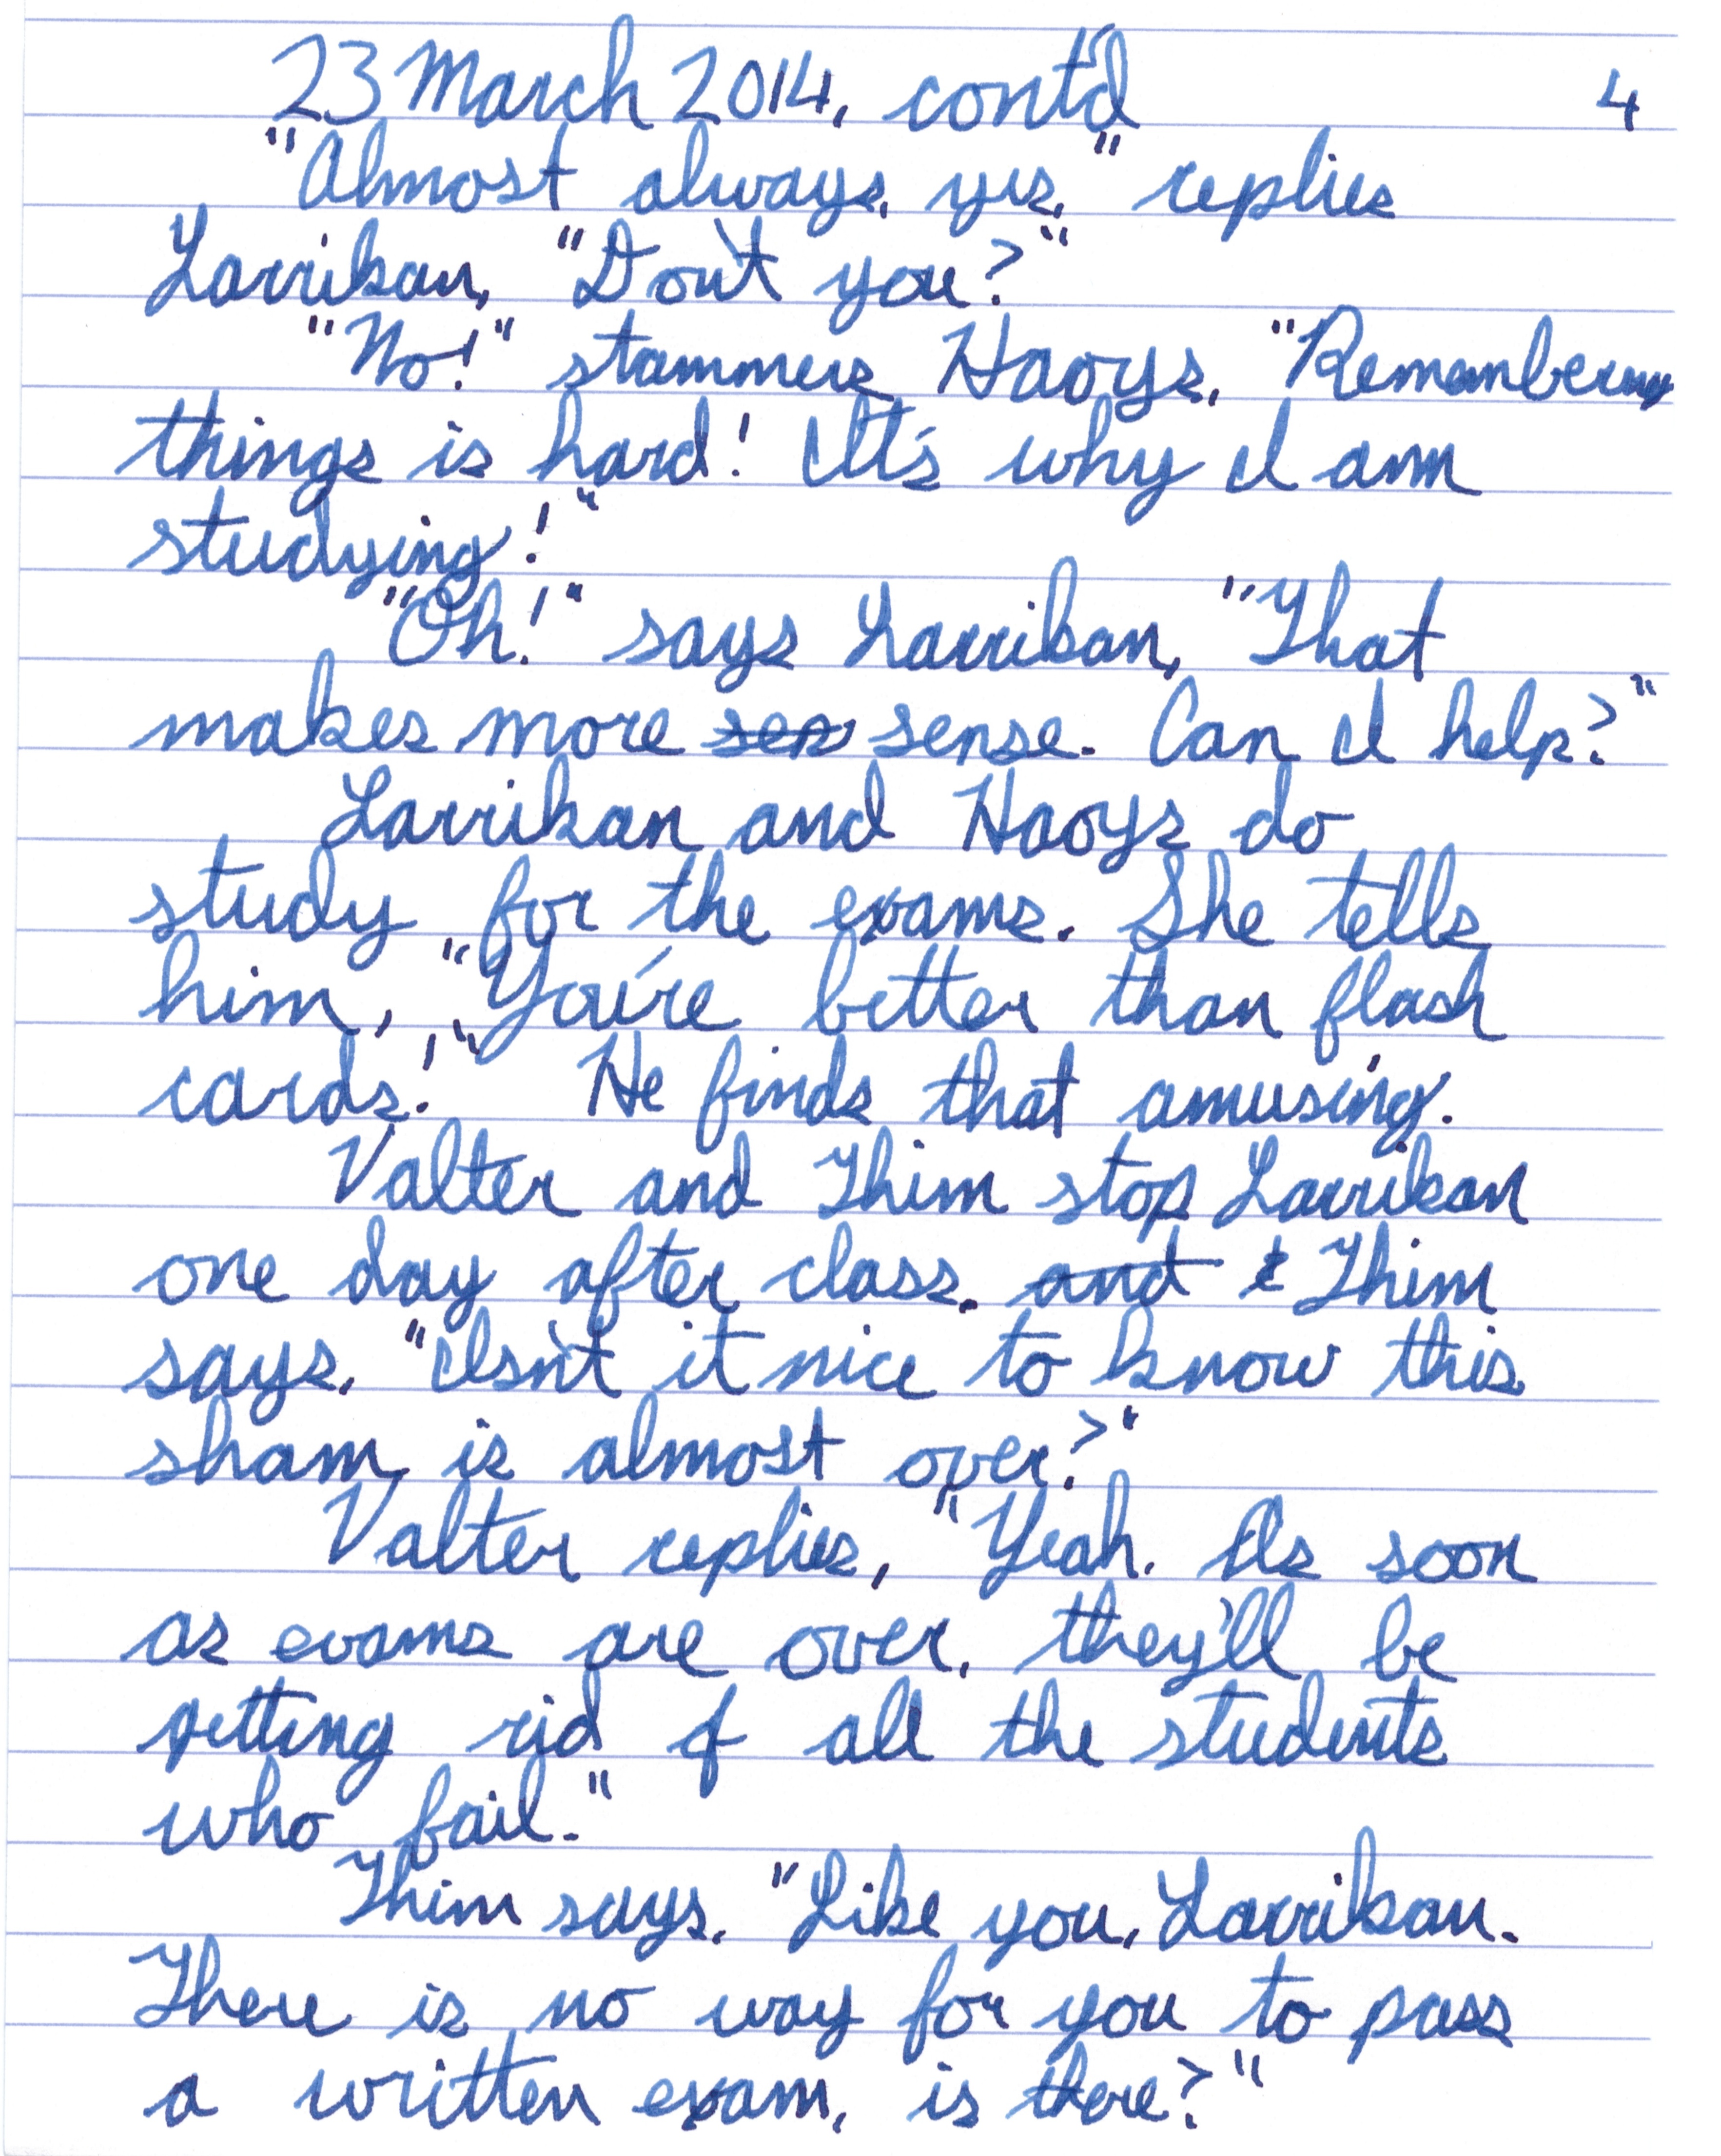 23 March 2014, cont'd 4
"Almost always, yes," replies
Larrikan, "Don't you?"
"No!" stammers Haoys, "Remembering
things is hard! It's why I am
studying!"
"Oh!" says Larrikan, "That
makes more sen sense. Can I help?"
Larrikan and Haoys do
study for the exams. She tells
him, "You're better than flash
cards!" He finds that amusing.
Valter and Thim stop Larrikan
one day after class, and & Thim
says, "Isn't it nice to know this
sham is almost over?"
Valter replies, "Yeah. As soon
as exams are over, they'll be
getting rid of all the students
who fail."
Thim says, "Like you, Larrikan.
There is no way for you to pass
a written exam, is there?"